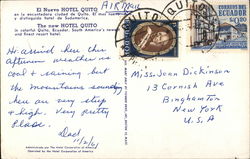 AIRMAIL
El Nuevo HOTEL QUITO
en la encantadora ciudad de Quito. El mas
y distinguido hotel de Sudamerica.
The new HOTEL QUITO
in colorful Quito, Ecuador, South America's newest
and finest resort hotel.
Arrived here this
afternoon weather is
cool & raining but
the mountains
here are very steep
& high. Very pretty
place.
Dad
11/2/61
QUITO
CORREOS DEL
ECUADOR
Miss Jean Dickinson
13 Cornish Ave
Binghamton
New York
U.S.A
Administrado por The Hotel Corporation of America
Operated by the Hotel Corporation of America